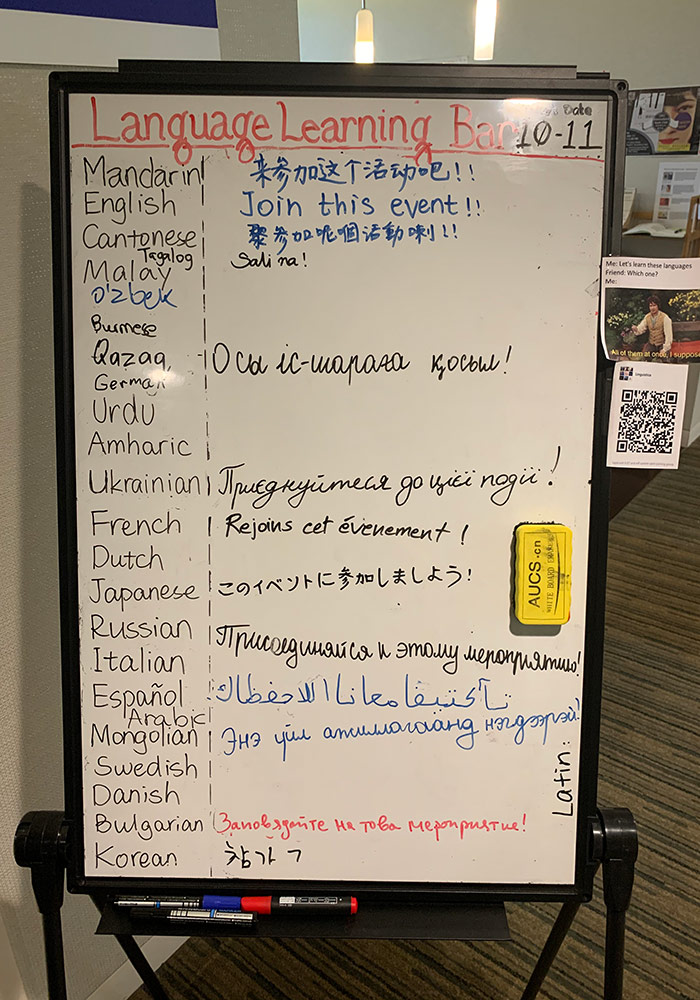 Date
Language Learning Bar 10-11
Mandarin 来参加这个活动吧!!
English Join this event!!
Cantonese 嚟参加呢個活動喇!!
Tagalog Sali na!
Malay
o'zbek
Burmese
Qazaq Осы іс-шараға қосыл!
German
Urdu
Amharic
Ukrainian Приєднуйтеся до цієї події!
French Rejoins cet évenement!
Dutch
Japanese このイベントに参加しましよう!
Russian Присоединяйся к этому мероприятию!
Italian
Español
Arabic
Mongolian Энэ үйл ажиллагаанд нэгдээрэй!
Swedish
Danish
Bulgarian Заповядайте на това мероприятие!
Korean 참가 ㄱ
Latin:
AUCS.cn
WHITE BOARD
Me: Let's learn these languages
Friend: Which one?
Me:
All of them at once, I suppose
Linguistica